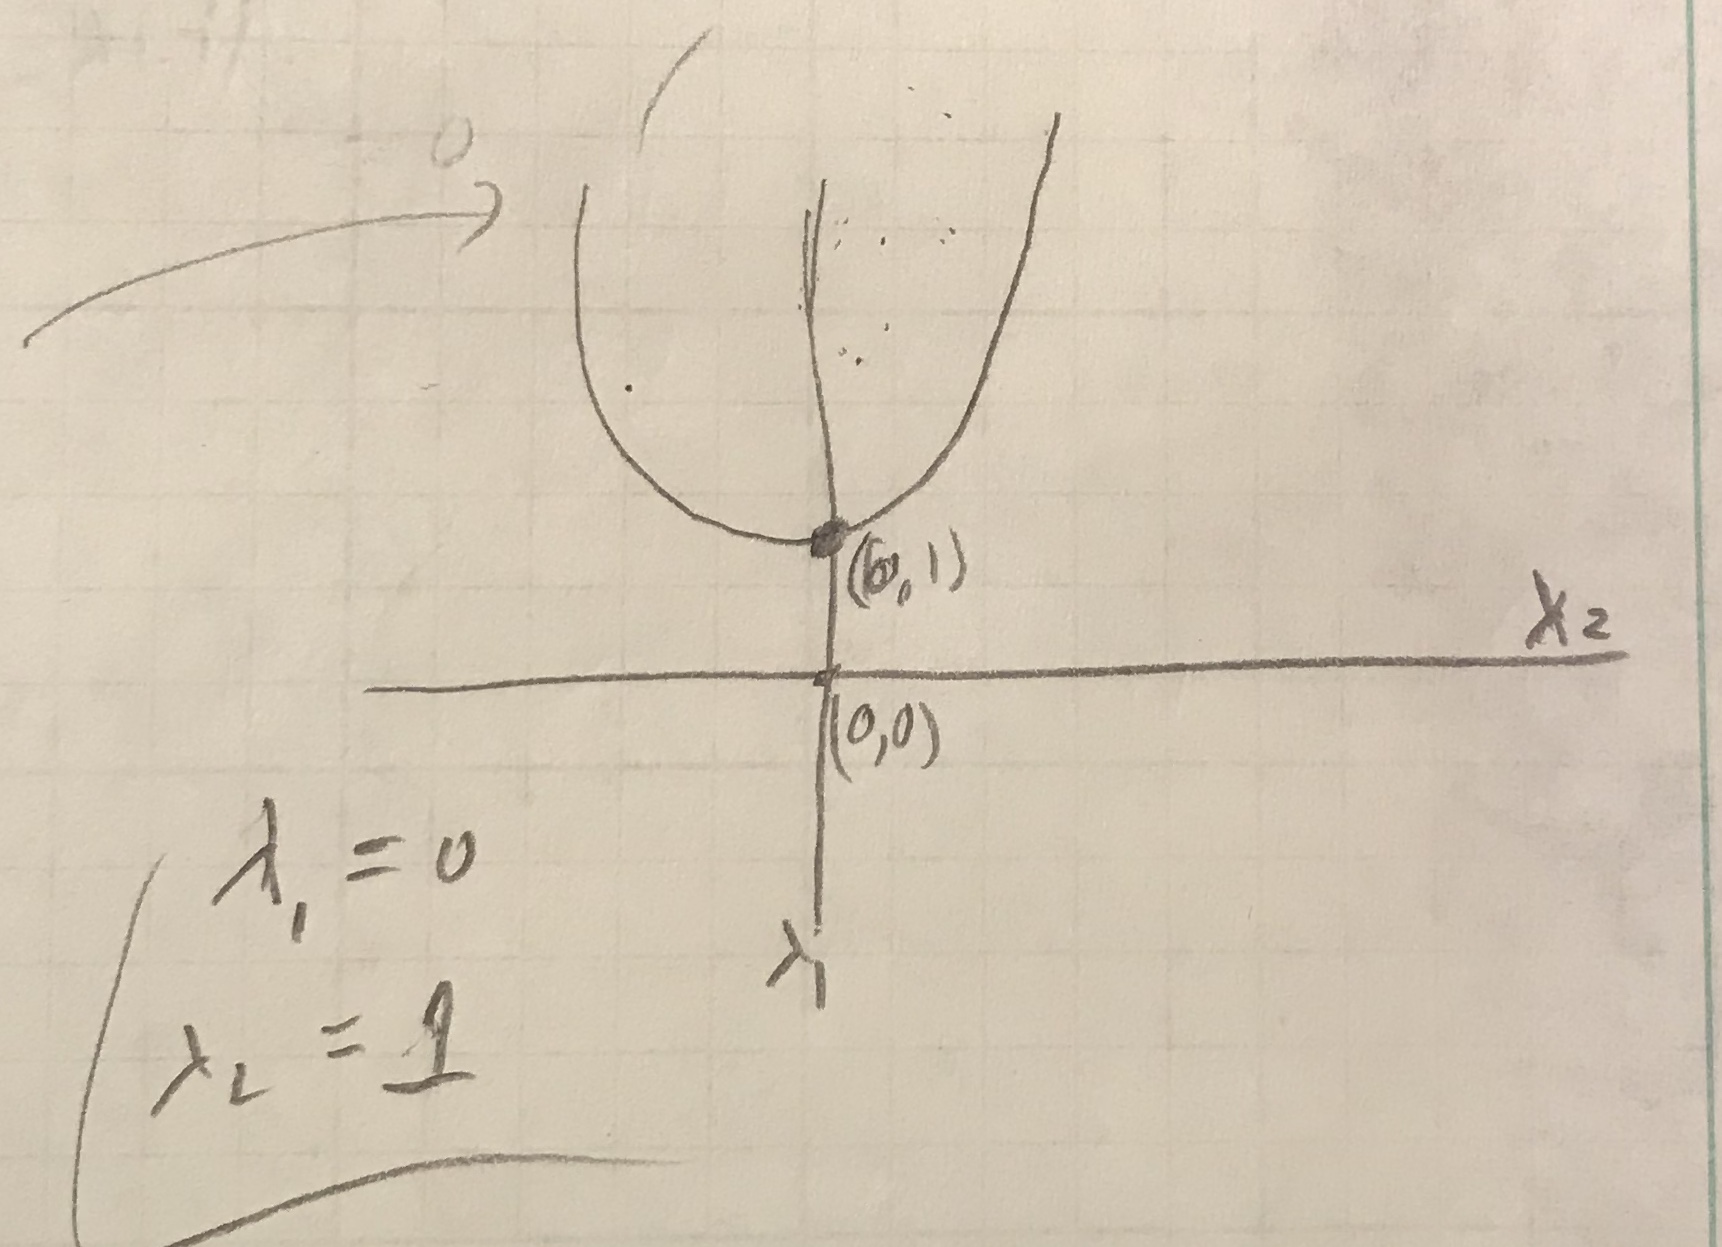 0
(0,1)
λ2
(0,0)
λ1 = 0
λ1
λ2 = 1